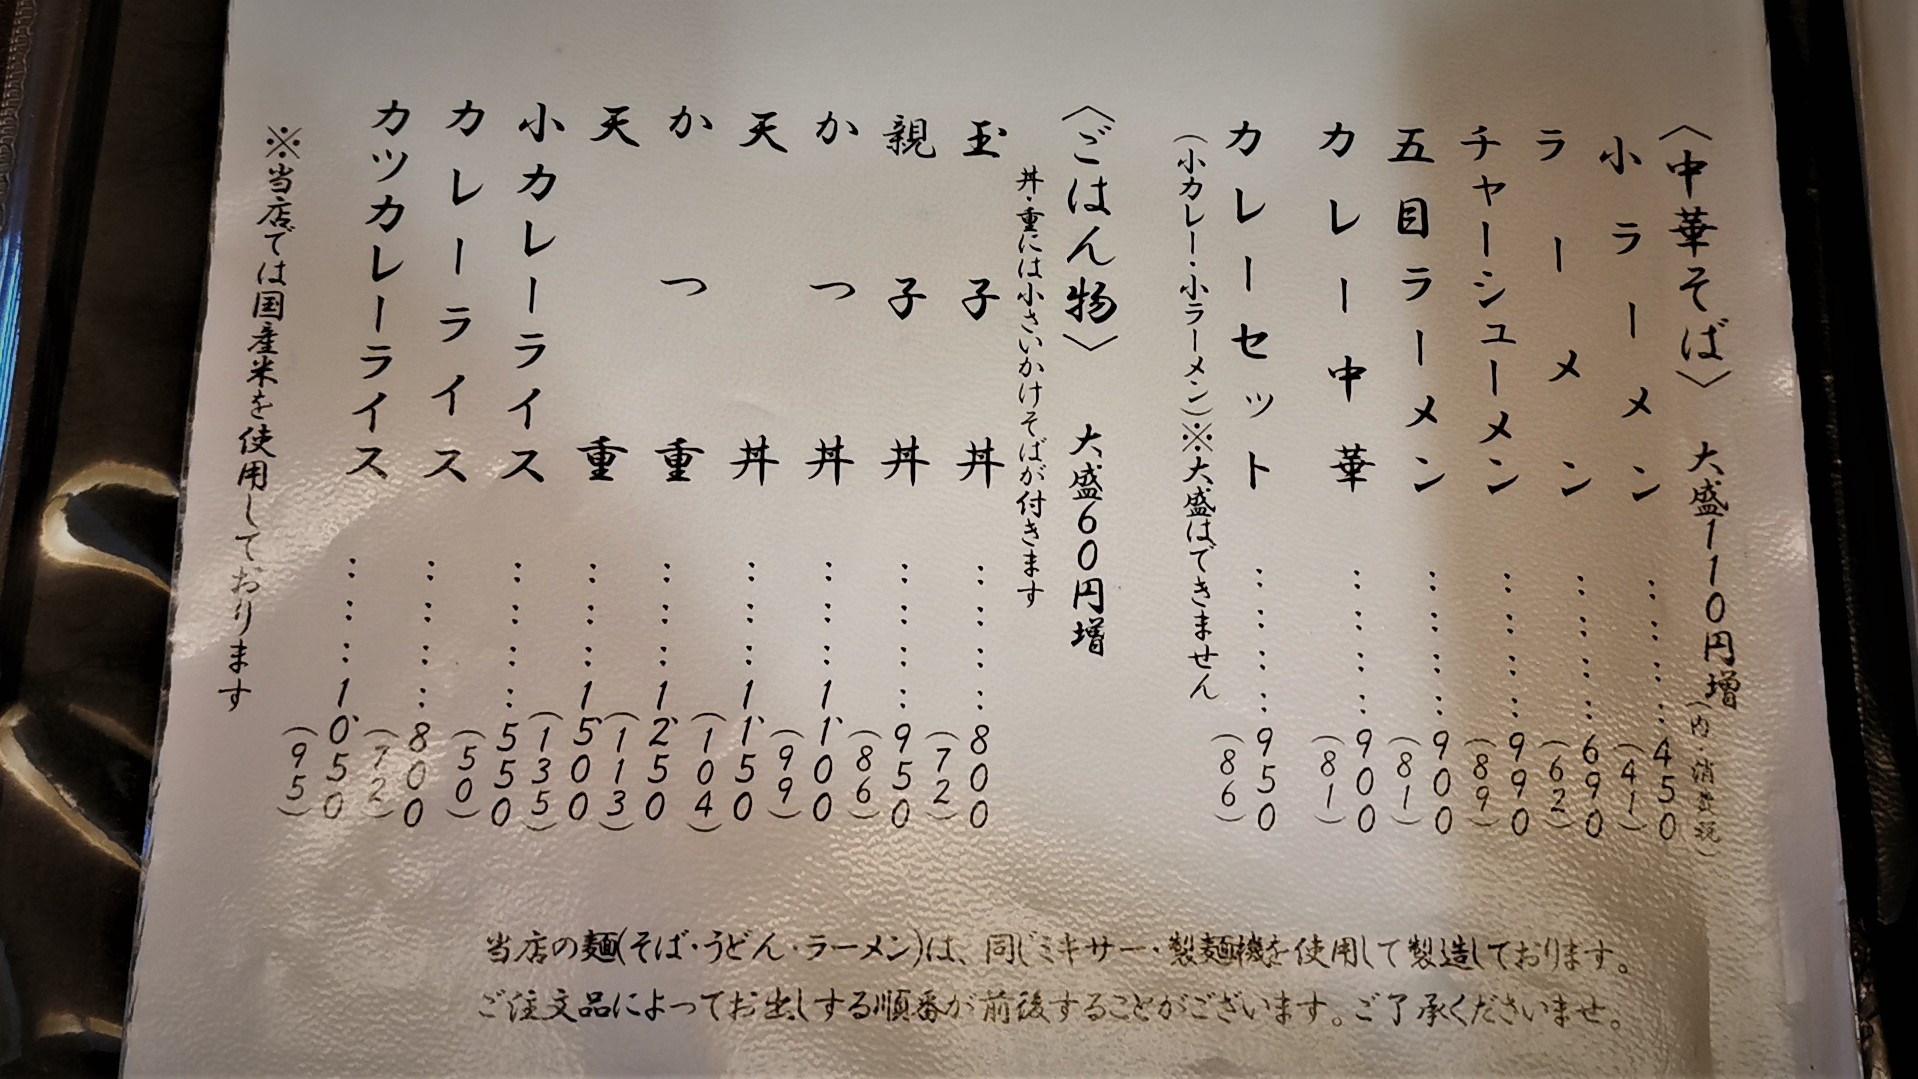 〈中華そば〉 大盛110円増(内・消費税)
小ラーメン……450(41)
ラーメン……690(62)
チャーシューメン……990(89)
五目ラーメン……900(81)
カレー中華……900(81)
カレーセット……950(86)
(小カレー・小ラーメン)※大盛はできません
〈ごはん物〉 大盛60円増
丼・重には小さいかけそばが付きます
玉子丼……800(72)
親子丼……950(86)
かつ丼……1,100(99)
天丼……1,150(104)
かつ重……1,250(113)
天重……1,500(135)
小カレーライス……550(50)
カレーライス……800(72)
カツカレーライス……1,050(95)
※当店では国産米を使用しております
当店の麺(そば・うどん・ラーメン)は、同じミキサー・製麺機を使用して製造しております。
ご注文品によってお出しする順番が前後することがございます。ご了承くださいませ。